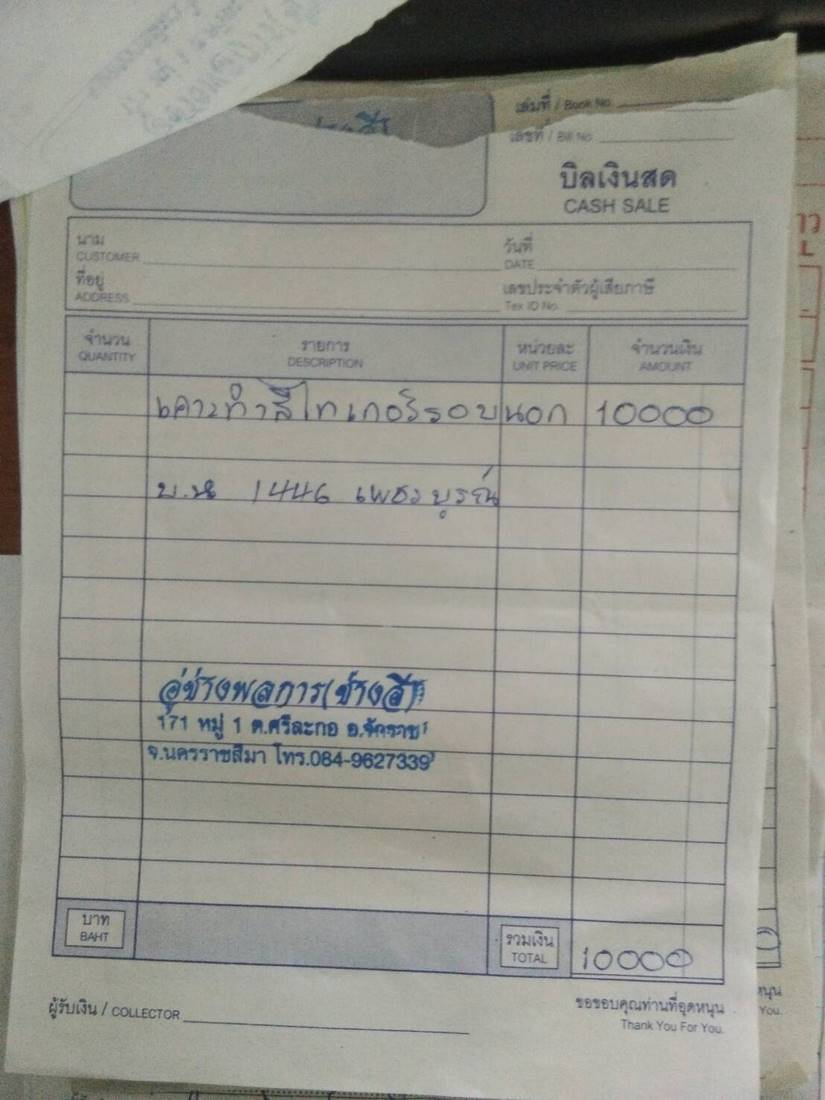 เล่มที่ / Book No.
เลขที่ / Bill No.
บิลเงินสด
CASH SALE
นาม
CUSTOMER
วันที่
DATE
ที่อยู่
ADDRESS
เลขประจำตัวผู้เสียภาษี
Tex ID No.
จำนวน
QUANTITY
รายการ
DESCRIPTION
หน่วยละ
UNIT PRICE
จำนวนเงิน
AMOUNT
เคาะทำสีไทเกอร์รอบนอก 10000
บ.น 1446 เพชรบูรณ์
อู่ช่างพลการ(ช่างอี๊)
171 หมู่ 1 ต.ศรีละกอ อ.จักราช
จ.นครราชสีมา โทร.084-9627339
บาท
BAHT
รวมเงิน
TOTAL
10000
ผู้รับเงิน / COLLECTOR
ขอขอบคุณท่านที่อุดหนุน
Thank You For You.